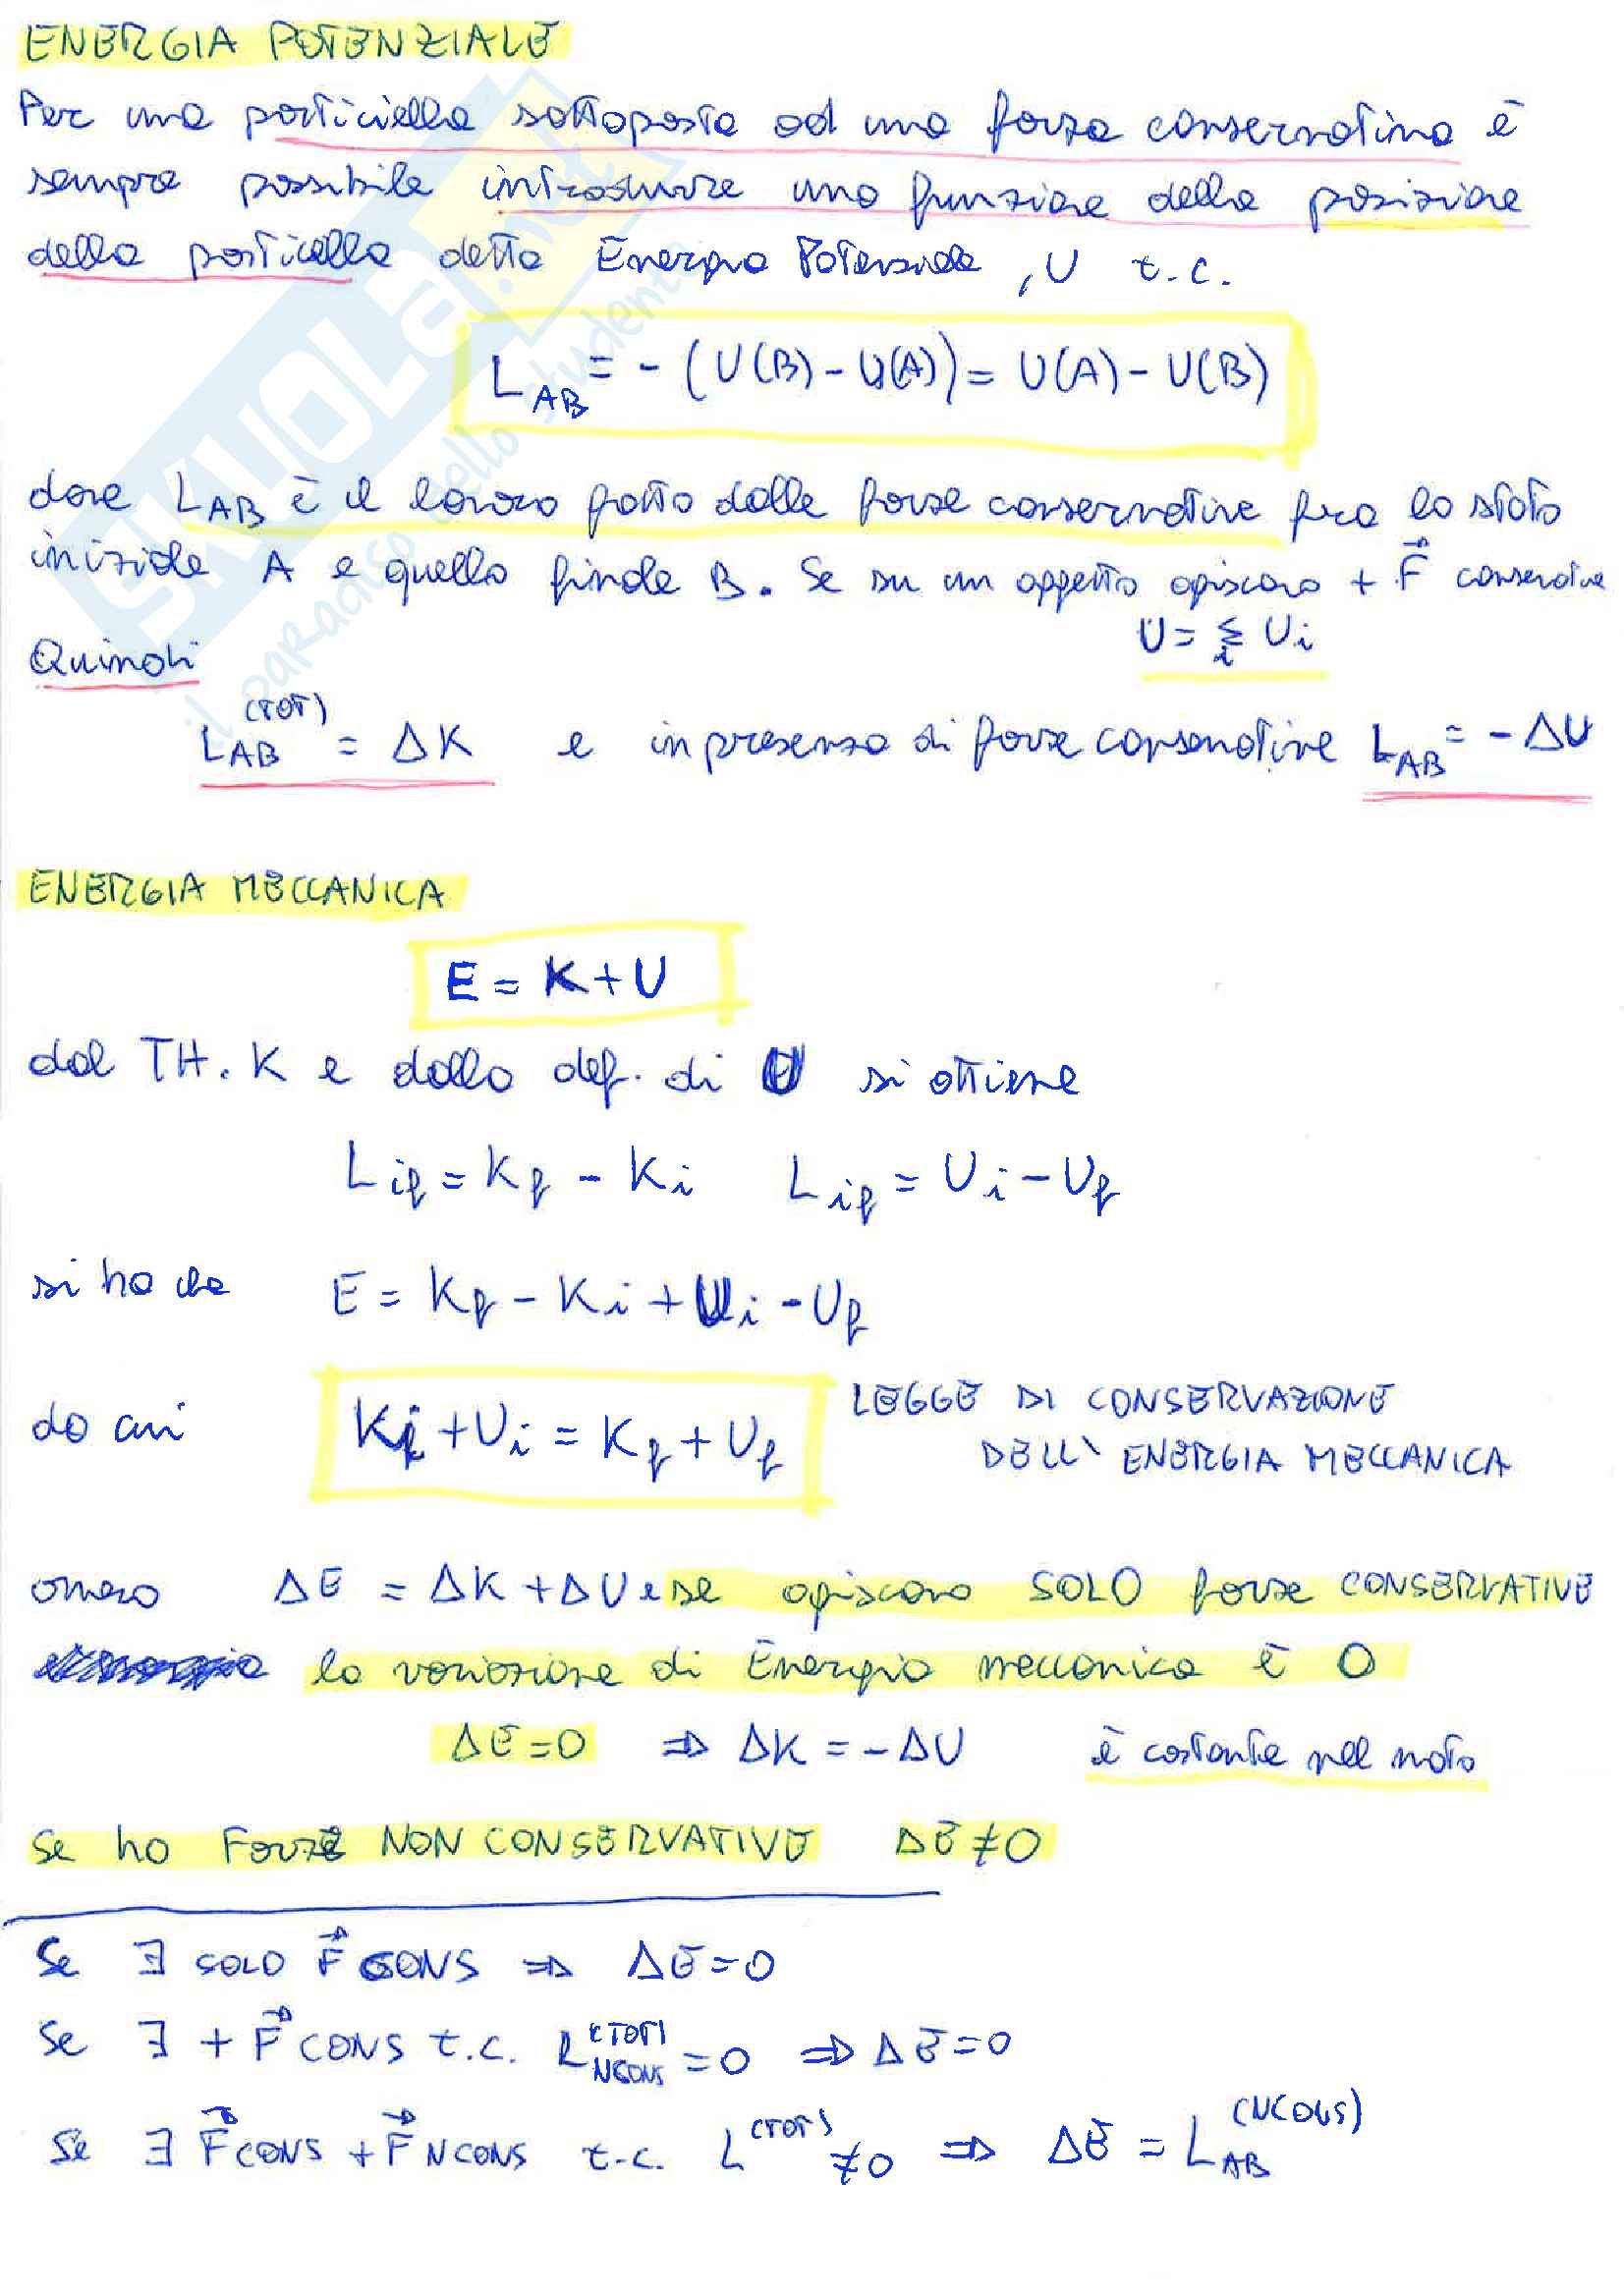 ENERGIA POTENZIALE
Per una particiella sottoposta ad una forza conservativa è
sempre possibile introdurre una funzione della posizione
della particella detta Energia Potenziale, U t.c.
L_AB = - (U(B) - U(A)) = U(A) - U(B)
dove L_AB è il lavoro fatto dalle forze conservative fra lo stato
iniziale A e quello finale B. Se su un oggetto agiscono + F⃗ conservative
U = Σ_i U_i
Quindi
L_AB^(TOT) = ΔK e in presenza di forze conservative L_AB = - ΔU
ENERGIA MECCANICA
E = K + U
dal TH. K e dalla def. di U si ottiene
L_if = K_f - K_i L_if = U_i - U_f
si ha che E = K_f - K_i + U_i - U_f
da cui K_i + U_i = K_f + U_f LEGGE DI CONSERVAZIONE
DELL' ENERGIA MECCANICA
ovvero ΔE = ΔK + ΔU e se agiscono SOLO forze CONSERVATIVE
la variazione di Energia meccanica è 0
ΔE = 0 ⇒ ΔK = - ΔU è costante nel moto
Se ho Forze NON CONSERVATIVE ΔE ≠ 0
Se ∃ SOLO F⃗ CONS ⇒ ΔE = 0
Se ∃ + F⃗ CONS t.c. L_NCONS^(TOT) = 0 ⇒ ΔE = 0
Se ∃ F⃗ CONS + F⃗ NCONS t.c. L^(TOT) ≠ 0 ⇒ ΔE = L_AB^(NCONS)
SKUOLA.net
il paradiso dello studente